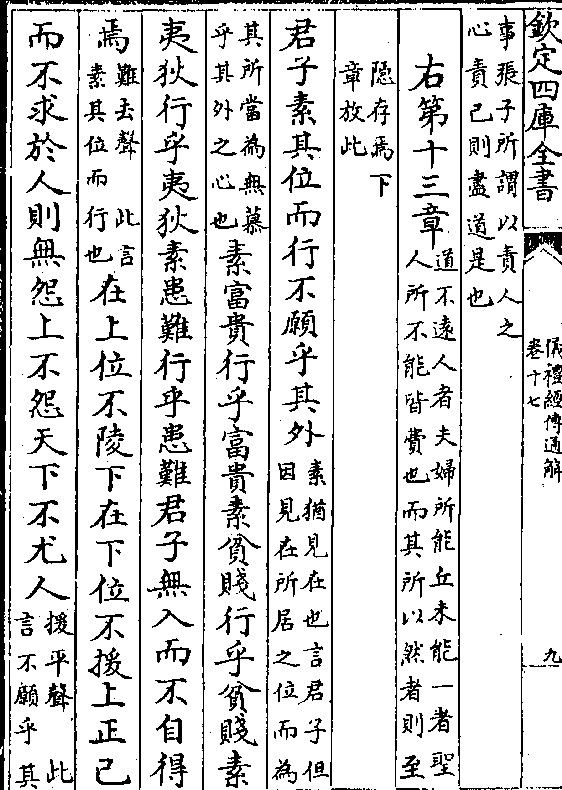 欽定四庫全書
儀禮經傳通解
卷十七
九
事張子所謂以責人之
心責己則盡道是也
右第十三章
道不遠人者夫婦所能丘未能一者聖
人所不能皆費也而其所以然者則至
隠存焉下
章放此
君子素其位而行不願乎其外
素猶見在也言君子但
因見在所居之位而為
其所當為無慕
乎其外之心也
素富貴行乎富貴素貧賤行乎貧賤素
夷狄行乎夷狄素患難行乎患難君子無入而不自得
焉
難去聲 此言
素其位而行也
在上位不陵下在下位不援上正己
而不求於人則無怨上不怨天下不尤人
援平聲 此
言不願乎其